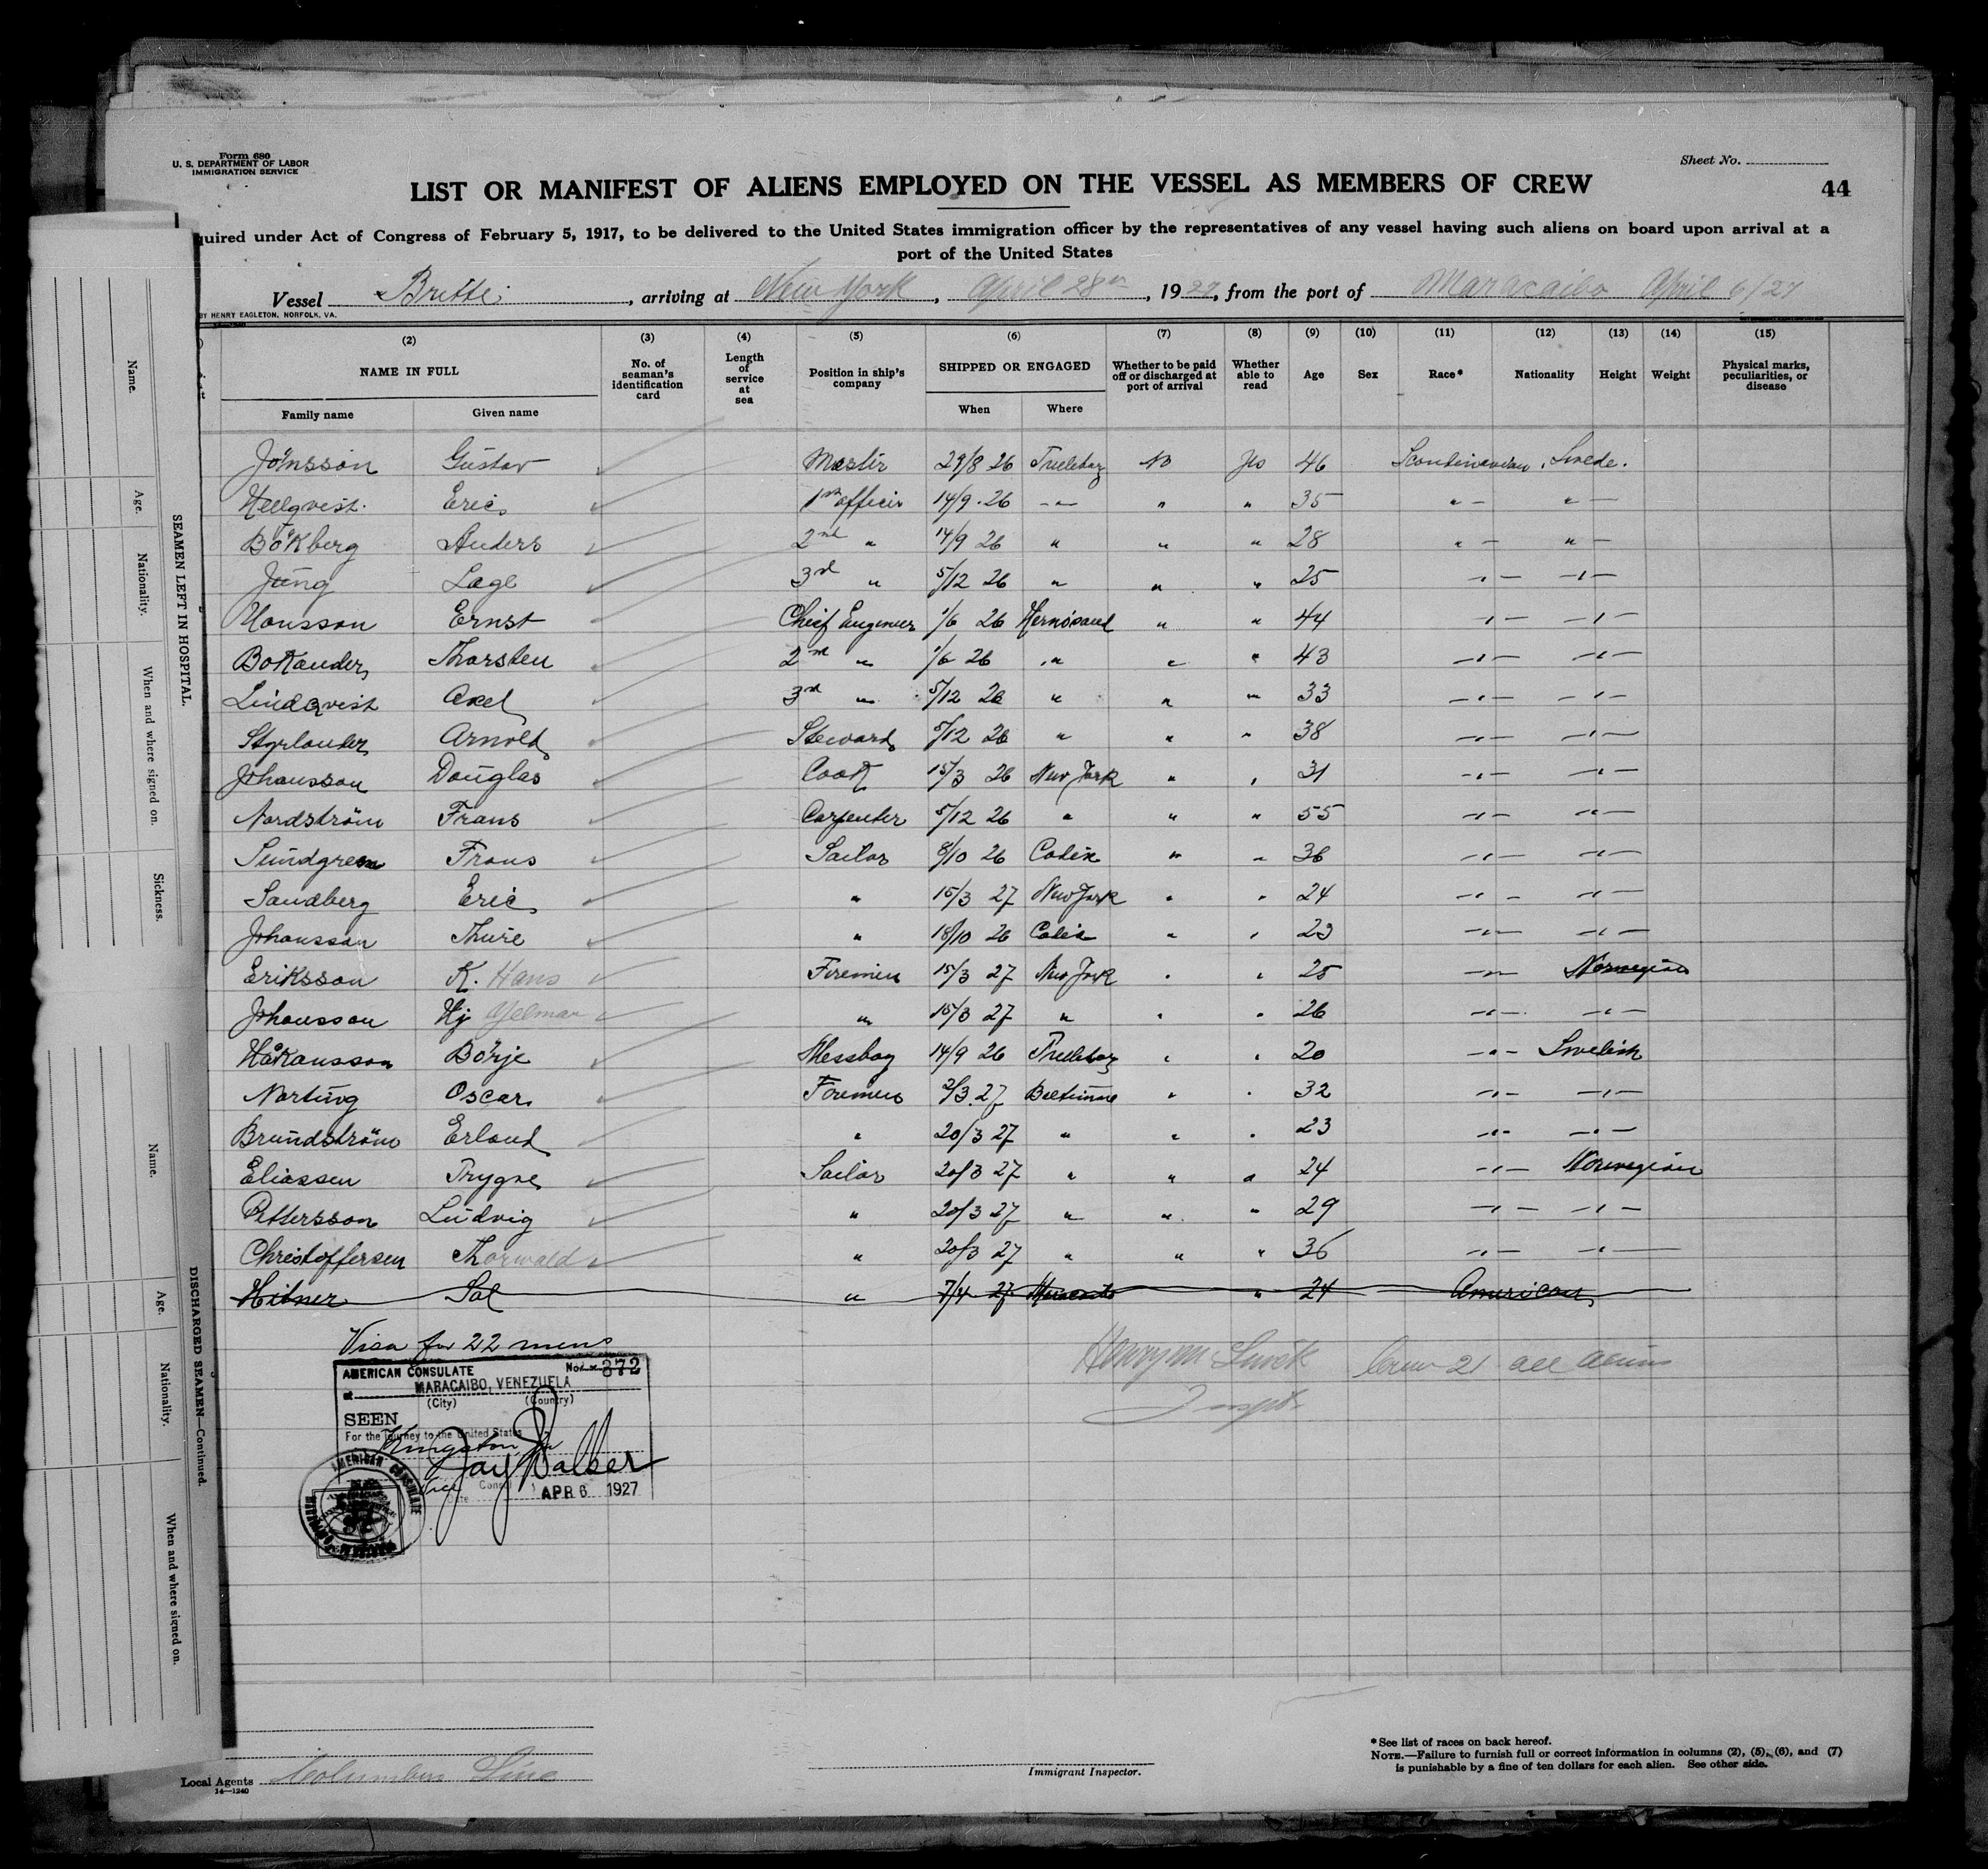 Form 680
U. S. DEPARTMENT OF LABOR
IMMIGRATION SERVICE
Sheet No.
LIST OR MANIFEST OF ALIENS EMPLOYED ON THE VESSEL AS MEMBERS OF CREW
44
quired under Act of Congress of February 5, 1917, to be delivered to the United States immigration officer by the representatives of any vessel having such aliens on board upon arrival at a
port of the United States
Vessel Britti, arriving at New York, April 28th, 1927, from the port of Maracaibo April 6/27
BY HENRY EAGLETON, NORFOLK, VA.
(2) (3) (4) (5) (6) (7) (8) (9) (10) (11) (12) (13) (14) (15)
NAME IN FULL
Family name Given name
No. of seaman's identification card
Length of service at sea
Position in ship's company
SHIPPED OR ENGAGED
When Where
Whether to be paid off or discharged at port of arrival
Whether able to read
Age
Sex
Race*
Nationality
Height
Weight
Physical marks, peculiarities, or disease
Jönsson Gustav Master 29/8 26 Trelleborg No Yes 46 Scandinavian Swede.
Hellqvist Eric 1st officer 14/9 26 -"- " " 35 " - " -
Bökberg Anders 2nd " 14/9 26 " " " 28 " - " -
Jung Lage 3rd " 5/12 26 " " " 25 -"- -"-
Hansson Ernst Cheif Engineer 1/6 26 Hernösand " " 44 -"- -"-
Bokander Thorsten 2nd " 1/6 26 " " " 43 -"- -"-
Lindqvist Axel 3rd " 5/12 26 " " " 33 -"- -"-
Styrlander Arnold Steward 5/12 26 " " " 38 -"- -"-
Johansson Douglas Cook 15/3 26 New York " " 31 -"- -"-
Nordström Frans Carpenter 5/12 26 " " " 55 -"- -"-
Sundgren Frans Sailor 8/10 26 " " 36 -"- -"-
Sandberg Eric " 15/3 27 New York " " 24 -"- -"-
Johansson Thure " 18/10 26 " " 23 -"- -"-
Eriksson K. Hans Firemen 15/3 27 New York " " 25 -"- Norwegian
Johansson Hj Yelmar " 15/3 27 " " " 26 -"- -"-
Håkansson Börje Messboy 14/9 26 Trelleborg " " 20 -"- Swedish
Nortung Oscar Firemen 2/3 27 Baltimore " " 32 -"- -"-
Brundström Erland " 20/3 27 " " " 23 -"- -"-
Eliassen Trygve Sailor 20/3 27 " " " 24 -"- Norwegian
Pettersson Ludvig " 20/3 27 " " " 29 -"- -"-
Christoffersen Thorwald " 20/3 27 " " " 36 -"- -"-
Hitner Sol " 7/4 27 Maracaibo " 24 American
Visa for 22 men
Henry M Crew 21 all aliens
Inspt.
AMERICAN CONSULATE No. 372
at MARACAIBO, VENEZUELA
(City) (Country)
SEEN
For the journey to the United States
Kingston Ja
Jay Walker
Vice Consul
Date APR 6 1927
AMERICAN CONSULATE
SEAMEN LEFT IN HOSPITAL.
Name.
Age.
Nationality.
When and where signed on.
Sickness.
DISCHARGED SEAMEN—Continued.
Name.
Age.
Nationality.
When and where signed on.
Local Agents Columbus Line
14—1240
Immigrant Inspector.
*See list of races on back hereof.
NOTE.—Failure to furnish full or correct information in columns (2), (5), (6), and (7)
is punishable by a fine of ten dollars for each alien. See other side.